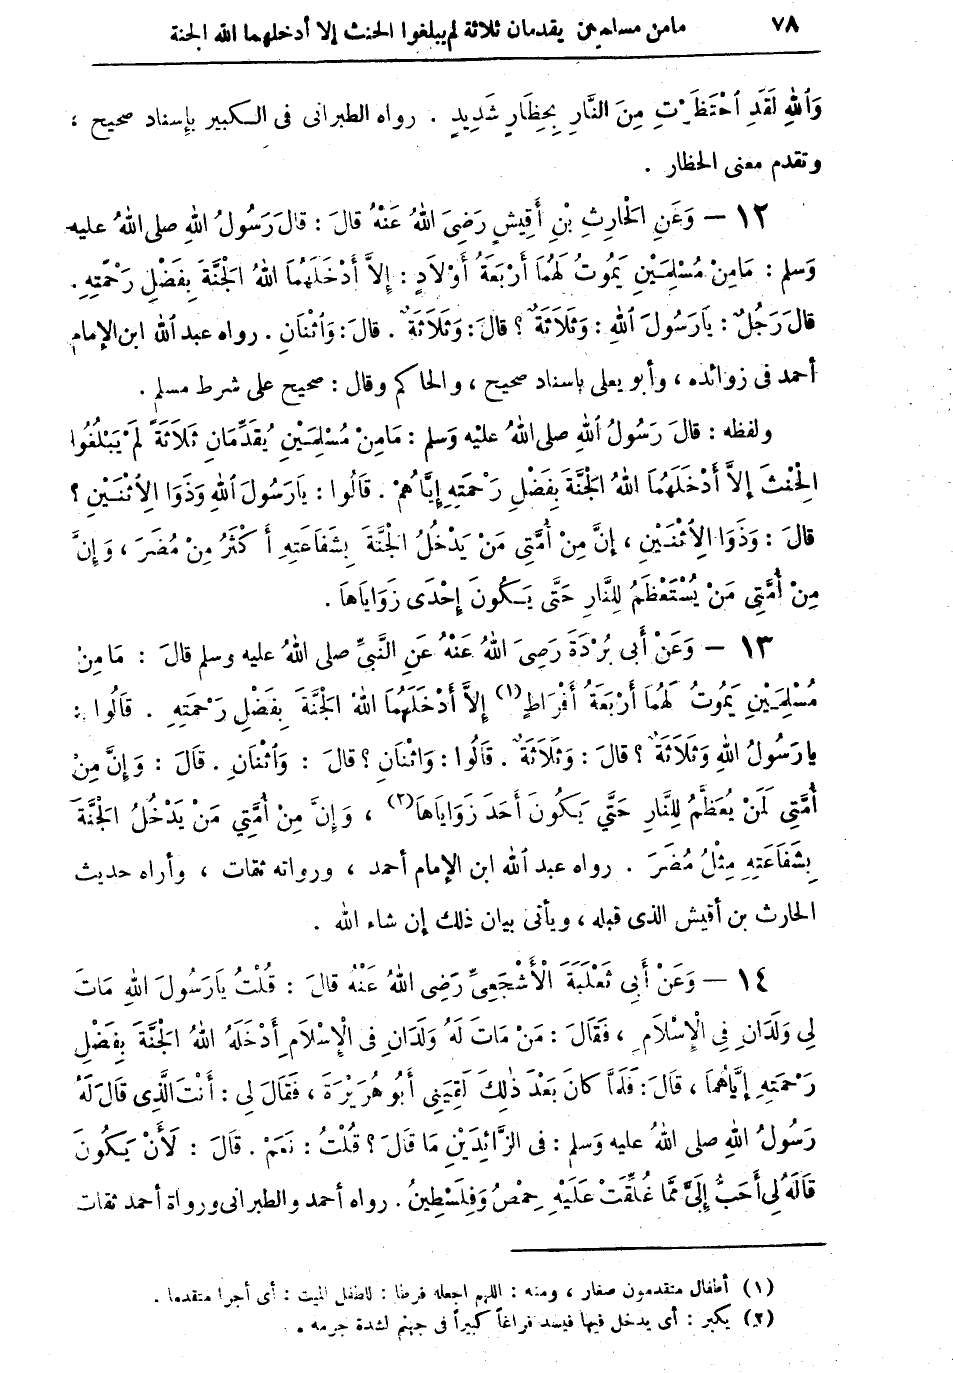 ٧٨ مامن مسلمين يقدمان ثلاثة لم يبلغوا الحنث إلا أدخلهما الله الجنة
وَٱللهِ لَقَدِ ٱحْتَظَرْتِ مِنَ النَّارِ بِحِظَارٍ شَدِيدٍ . رواه الطبرانى فى الكبير بإسناد صحيح ،
وتقدم معنى الحظار .
١٢ — وَعَنِ الْحَارِثِ بْنِ أُقَيْشٍ رَضِىَ اللهُ عَنْهُ قالَ : قالَ رَسُولُ اللهِ صلى اللهُ عليه
وَسلم : مَامِنْ مُسْلِمَيْنِ يَمُوتُ لَهُمَا أَرْبَعَةُ أَوْلَادٍ : إِلاَّ أَدْخَلَهُمَا اللهُ الْجَنَّةَ بِفَضْلِ رَحْمَتِهِ .
قالَ رَجُلٌ : يَارَسُولَ اللهِ : وَثَلَاثَةٌ ؟ قالَ : وَثَلَاثَةٌ . قالَ : وَٱثْنَانِ . رواه عبد الله ابن الإمام
أحمد فى زوائده ، وأبو يعلى بإسناد صحيح ، والحاكم وقال : صحيح على شرط مسلم .
ولفظه : قالَ رَسُولُ اللهِ صلى اللهُ عليْه وَسلم : مَامِنْ مُسْلِمَيْنِ يُقَدِّمَانِ ثَلَاثَةً لَمْ يَبْلُغُوا
الْحِنْثَ إِلاَّ أَدْخَلَهُمَا اللهُ الْجَنَّةَ بِفَضْلِ رَحْمَتِهِ إِيَّاهُمْ . قَالُوا : يَارَسُولَ اللهِ وَذَوَا الِاثْنَيْنِ ؟
قالَ : وَذَوَا الِاثْنَيْنِ ، إِنَّ مِنْ أُمَّتِى مَنْ يَدْخُلُ الْجَنَّةَ بِشَفَاعَتِهِ أَكْثَرُ مِنْ مُضَرَ ، وَإِنَّ
مِنْ أُمَّتِى مَنْ يُسْتَعْظَمُ لِلنَّارِ حَتَّى يَكُونَ إِحْدَى زَوَايَاهَا .
١٣ — وَعَنْ أَبِى بُرْدَةَ رَضِىَ اللهُ عَنْهُ عَنِ النَّبِىِّ صلى اللهُ عليه وسلم قالَ : مَامِنْ
مُسْلِمَيْنِ يَمُوتُ لَهُمَا أَرْبَعَةُ أَفْرَاطٍ(١) إِلاَّ أَدْخَلَهُمَا اللهُ الْجَنَّةَ بِفَضْلِ رَحْمَتِهِ . قَالُوا :
يارَسُولُ اللهِ وَثَلَاثَةٌ ؟ قالَ : وَثَلَاثَةٌ . قَالُوا : وَاثْنَانِ ؟ قالَ : وَٱثْنَانِ . قَالَ : وَإِنَّ مِنْ
أُمَّتِي لَمَنْ يُعَظَّمُ لِلنَّارِ حَتَّي يَكُونَ أَحَدَ زَوَايَاهَا(٢) ، وَإِنَّ مِنْ أُمَّتِي مَنْ يَدْخُلُ الْجَنَّةَ
بِشَفَاعَتِهِ مِثْلُ مُضَرَ . رواه عبد الله ابن الإمام أحمد ، ورواته ثقات ، وأراه حديث
الحارث بن أقيش الذى قبله ، ويأتى بيان ذلك إن شاء الله .
١٤ — وَعَنْ أَبِي ثَعْلَبَةَ الْأَشْجَعِىِّ رَضِى اللهُ عَنْهُ قالَ : قُلْتُ يَارَسُولَ اللهِ مَاتَ
لِى وَلَدَانِ فِى الْإِسْلَامِ ، فَقَالَ : مَنْ مَاتَ لَهُ وَلَدَانِ فى الْإِسْلَامِ أَدْخَلَهُ اللهُ الْجَنَّةَ بِفَضْلِ
رَحْمَتِهِ إِيَّاهُمَا ، قَالَ : فَلَمَّا كانَ بَعْدَ ذٰلِكَ لَقِيَنِى أَبُو هُرَيْرَةَ ، فَقَالَ لِى : أَنْتَ الَّذِى قَالَ لَهُ
رَسُولُ اللهِ صلى اللهُ عليه وَسلم : فى الْوَلَدَيْنِ مَا قَالَ ؟ قُلْتُ : نَعَمْ . قَالَ : لَأَنْ يَكُونَ
قَالَهُ لِى أَحَبُّ إِلَىَّ مِمَّا غُلِّقَتْ عَلَيْهِ حِمْصُ وَفِلَسْطِينُ . رواه أحمد والطبرانى ورواة أحمد ثقات
(١) أطفال متقدمون صغار ، ومنه : اللهم اجعله فرطا : للطفل الميت : أى أجرا متقدما .
(٢) يكبر : أى يدخل فيها فيسد فراغاً كبيراً فى جهنم لشدة جرمه .